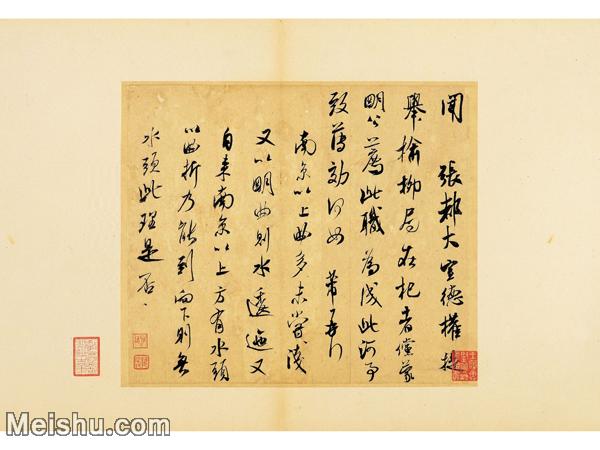 聞 張都大宣德權提
舉榆柳局在杞者儻蒙
明公薦此職為成此河事
致薄効何如 芾再行
南京以上曲多未嘗淺
又以明曲則水逶迤又
自来南京以上方有水頭
以曲折乃能到向下則無
水頭此理是否
Meishu.com